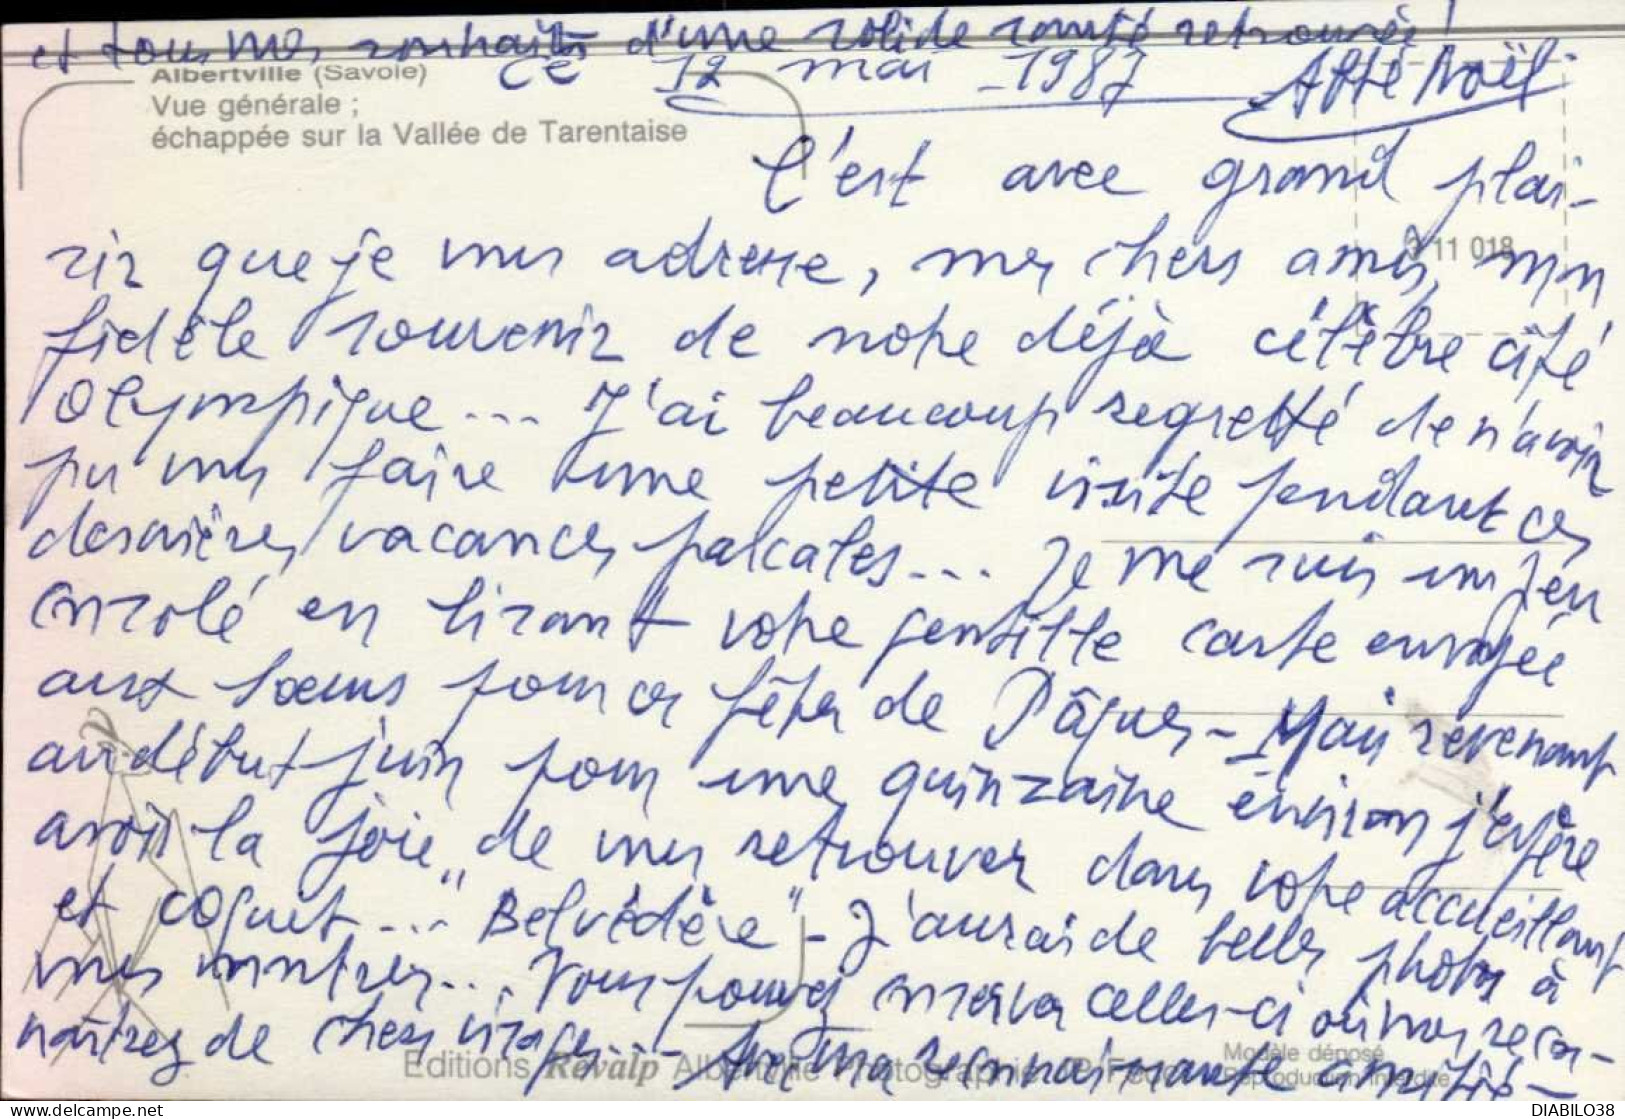 et tous mes souhaits d'une solide santé retrouvée !
Albertville (Savoie)
Vue générale ;
échappée sur la Vallée de Tarentaise
Ce 12 mai 1987 Abbé Noël
C'est avec grand plai-
sir que je vous adresse, mes chers amis, mon
11 018
fidèle souvenir de notre déjà célèbre cité
olympique... J'ai beaucoup regretté de n'avoir
pu vous faire une petite visite pendant ces
dernières vacances pascales... Je me suis un peu
consolé en lisant votre gentille carte envoyée
aux Soeurs pour ces fêtes de Pâques - Mais revenant
au début juin pour une quinzaine environ j'espère
avoir la joie de vous retrouver dans votre accueillant
et coquet... "Belvédère" - J'aurai de belles photos à
vous montrer... Vous pouvez conserver celles-ci où vous recon-
naîtrez de chers visages... - Avec ma reconnaissante amitié -
Editions Révalp Albertville Photographie
Modèle déposé
Reproduction interdite
DIABILO38